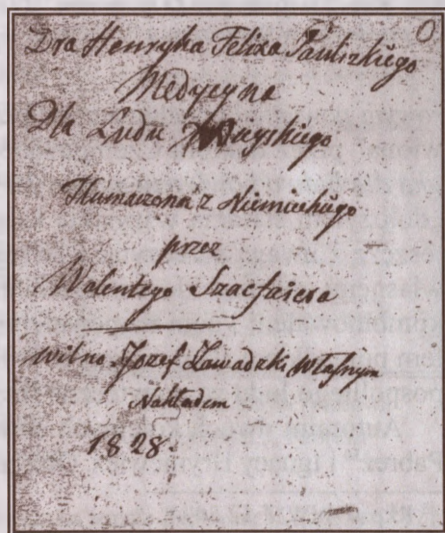 0
Dra Henryka Felixa Paulizkiego
Medycyna
Dla Ludu Wieyskiego
Tłumaczona z Niemieckiego
przez
Walentego Szacfaiera
Wilno Jozef Zawadzki Własnym
Nakładem
1828